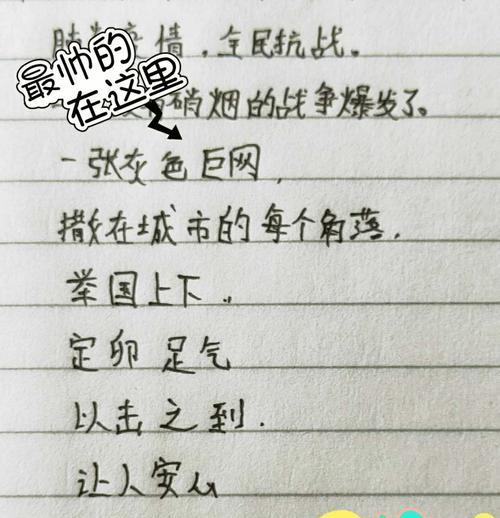 情，全民抗战。
最帅的
在这里
硝烟的战争爆发了。
一张灰色巨网，
撒在城市的每个角落，
举国上下。
定卯足气
以击之到.
让人安心